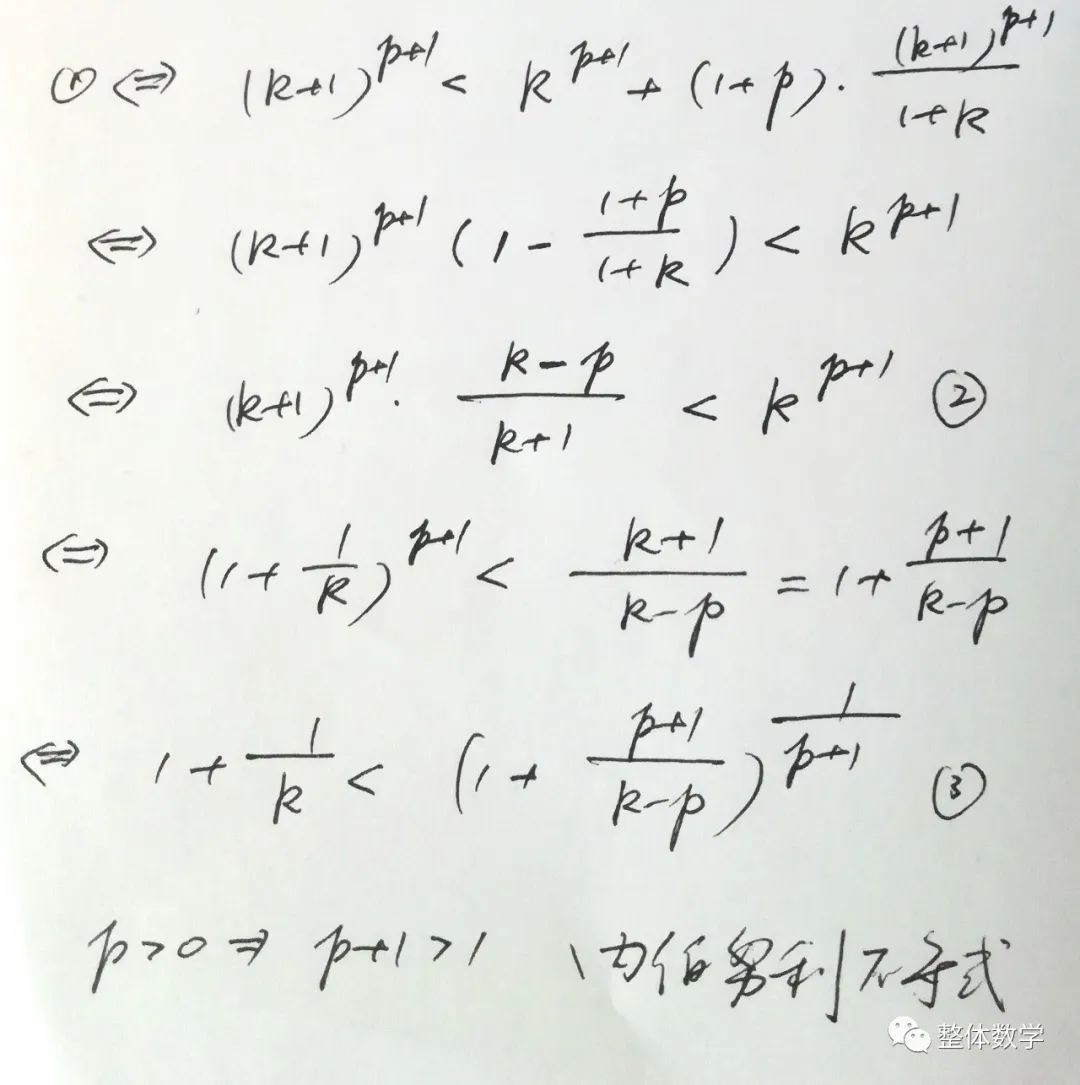 ① ⇔ (k+1)^{p+1} < k^{p+1} + (1+p)·\frac{(k+1)^{p+1}}{1+k}
⇔ (k+1)^{p+1} (1 - \frac{1+p}{1+k}) < k^{p+1}
⇔ (k+1)^{p+1} · \frac{k-p}{k+1} < k^{p+1} ②
⇔ (1+\frac{1}{k})^{p+1} < \frac{k+1}{k-p} = 1+\frac{p+1}{k-p}
⇔ 1+\frac{1}{k} < (1+\frac{p+1}{k-p})^{\frac{1}{p+1}} ③
p>0 ⇒ p+1>1 由伯努利不等式
整体数学